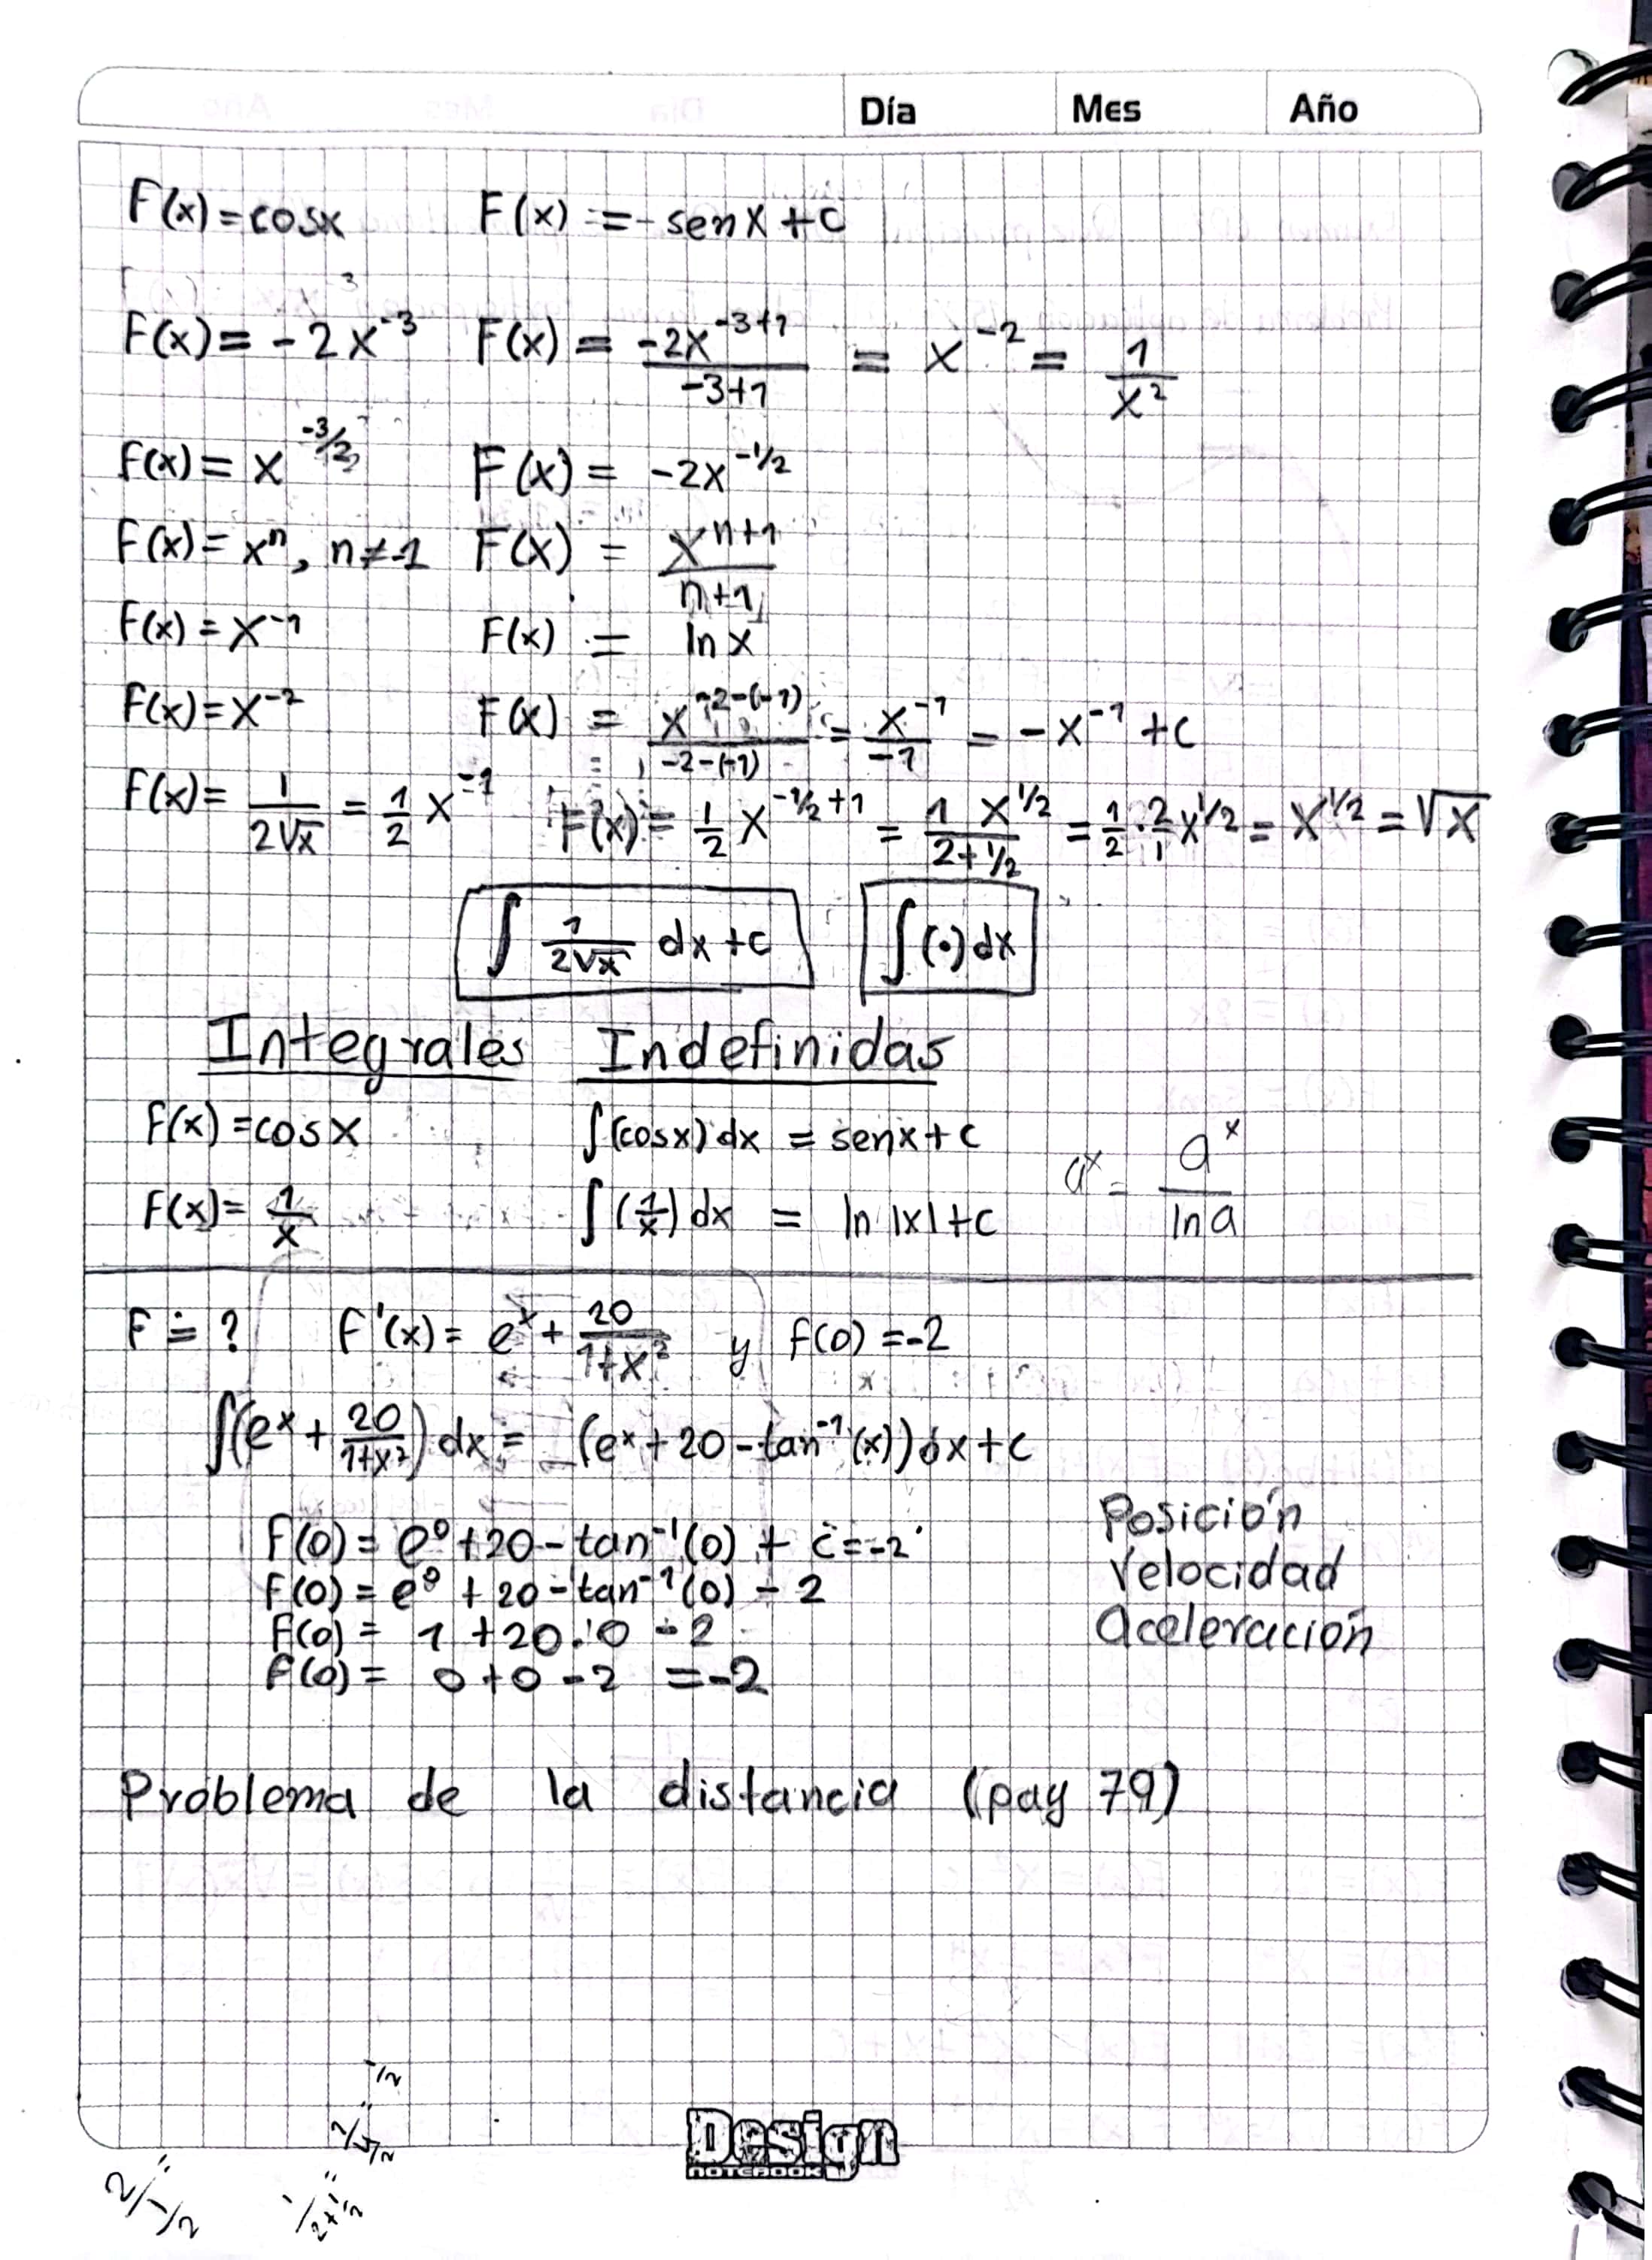 Día Mes Año
F(x) = cosx F(x) = - senx + c
F(x) = - 2x^-3 F(x) = -2x^-3+1 / -3+1 = x^-2 = 1/x^2
f(x) = x^-3/2 F(x) = -2x^-1/2
F(x) = x^n, n≠-1 F(x) = x^n+1 / n+1
F(x) = x^-1 F(x) = ln x
F(x) = x^-2 F(x) = x^-2-(-1) / -2-(-1) = x^-1 / -1 = -x^-1 + c
F(x) = 1/2√x = 1/2 x^-1 F(x) = 1/2 x^-1/2+1 = 1 x^1/2 / 2+1/2 = 1/2 · 2/1 x^1/2 = x^1/2 = √x
∫ 1/2√x dx + c ∫(·)dx
Integrales Indefinidas
F(x) = cosx ∫(cosx)dx = senx + c
a^x = a^x / ln a
F(x) = 1/x ∫(1/x)dx = ln |x| + c
F = ? F'(x) = e^x + 20/1+x^2 y f(0) = -2
∫(e^x + 20/1+x^2) dx = (e^x + 20 - tan^-1(x))dx + c
F(0) = e^0 + 20 - tan^-1(0) + c = -2
F(0) = e^0 + 20 - tan^-1(0) - 2
F(0) = 1 + 20 · 0 - 2
F(0) = 0 + 0 - 2 = -2
Posición
Velocidad
Aceleración
Problema de la distancia (pag 79)
Design
NOTEBOOK